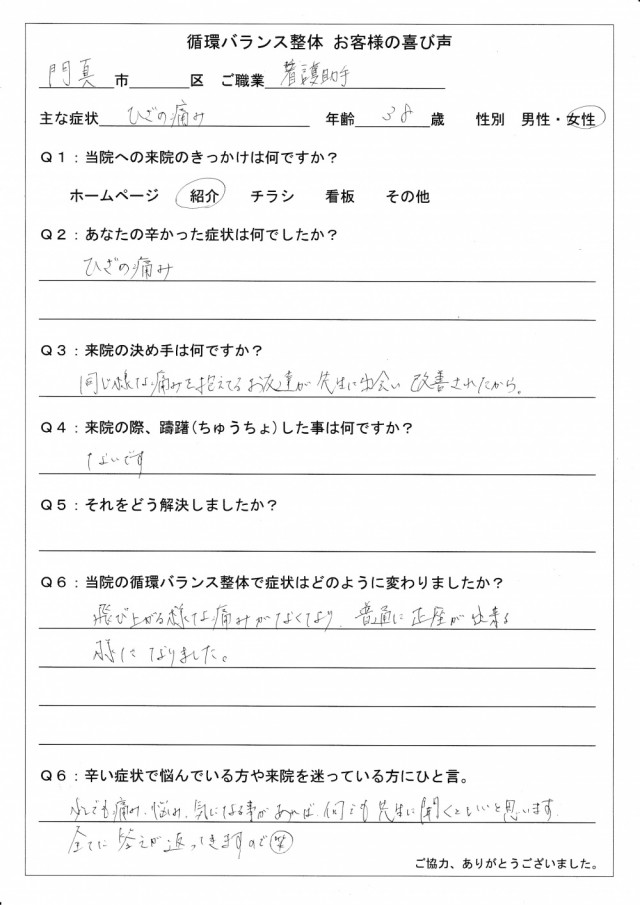 循環バランス整体 お客様の喜び声
門真市 区 ご職業 看護助手
主な症状 ひざの痛み 年齢 38 歳 性別 男性・女性
Q1:当院への来院のきっかけは何ですか?
ホームページ 紹介 チラシ 看板 その他
Q2:あなたの辛かった症状は何でしたか?
ひざの痛み
Q3:来院の決め手は何ですか?
同じ様な痛みを抱えてるお友達が先生に出会い改善されたから。
Q4:来院の際、躊躇(ちゅうちょ)した事は何ですか?
ないです
Q5:それをどう解決しましたか?
Q6:当院の循環バランス整体で症状はどのように変わりましたか?
飛び上がる様な痛みがなくなり、普通に正座が出来る
様になりました。
Q6:辛い症状で悩んでいる方や来院を迷っている方にひと言。
少しでも痛み、悩み、気になる事があれば、何でも先生に聞くといいと思います。
全てに答えが返ってきますので㊎
ご協力、ありがとうございました。